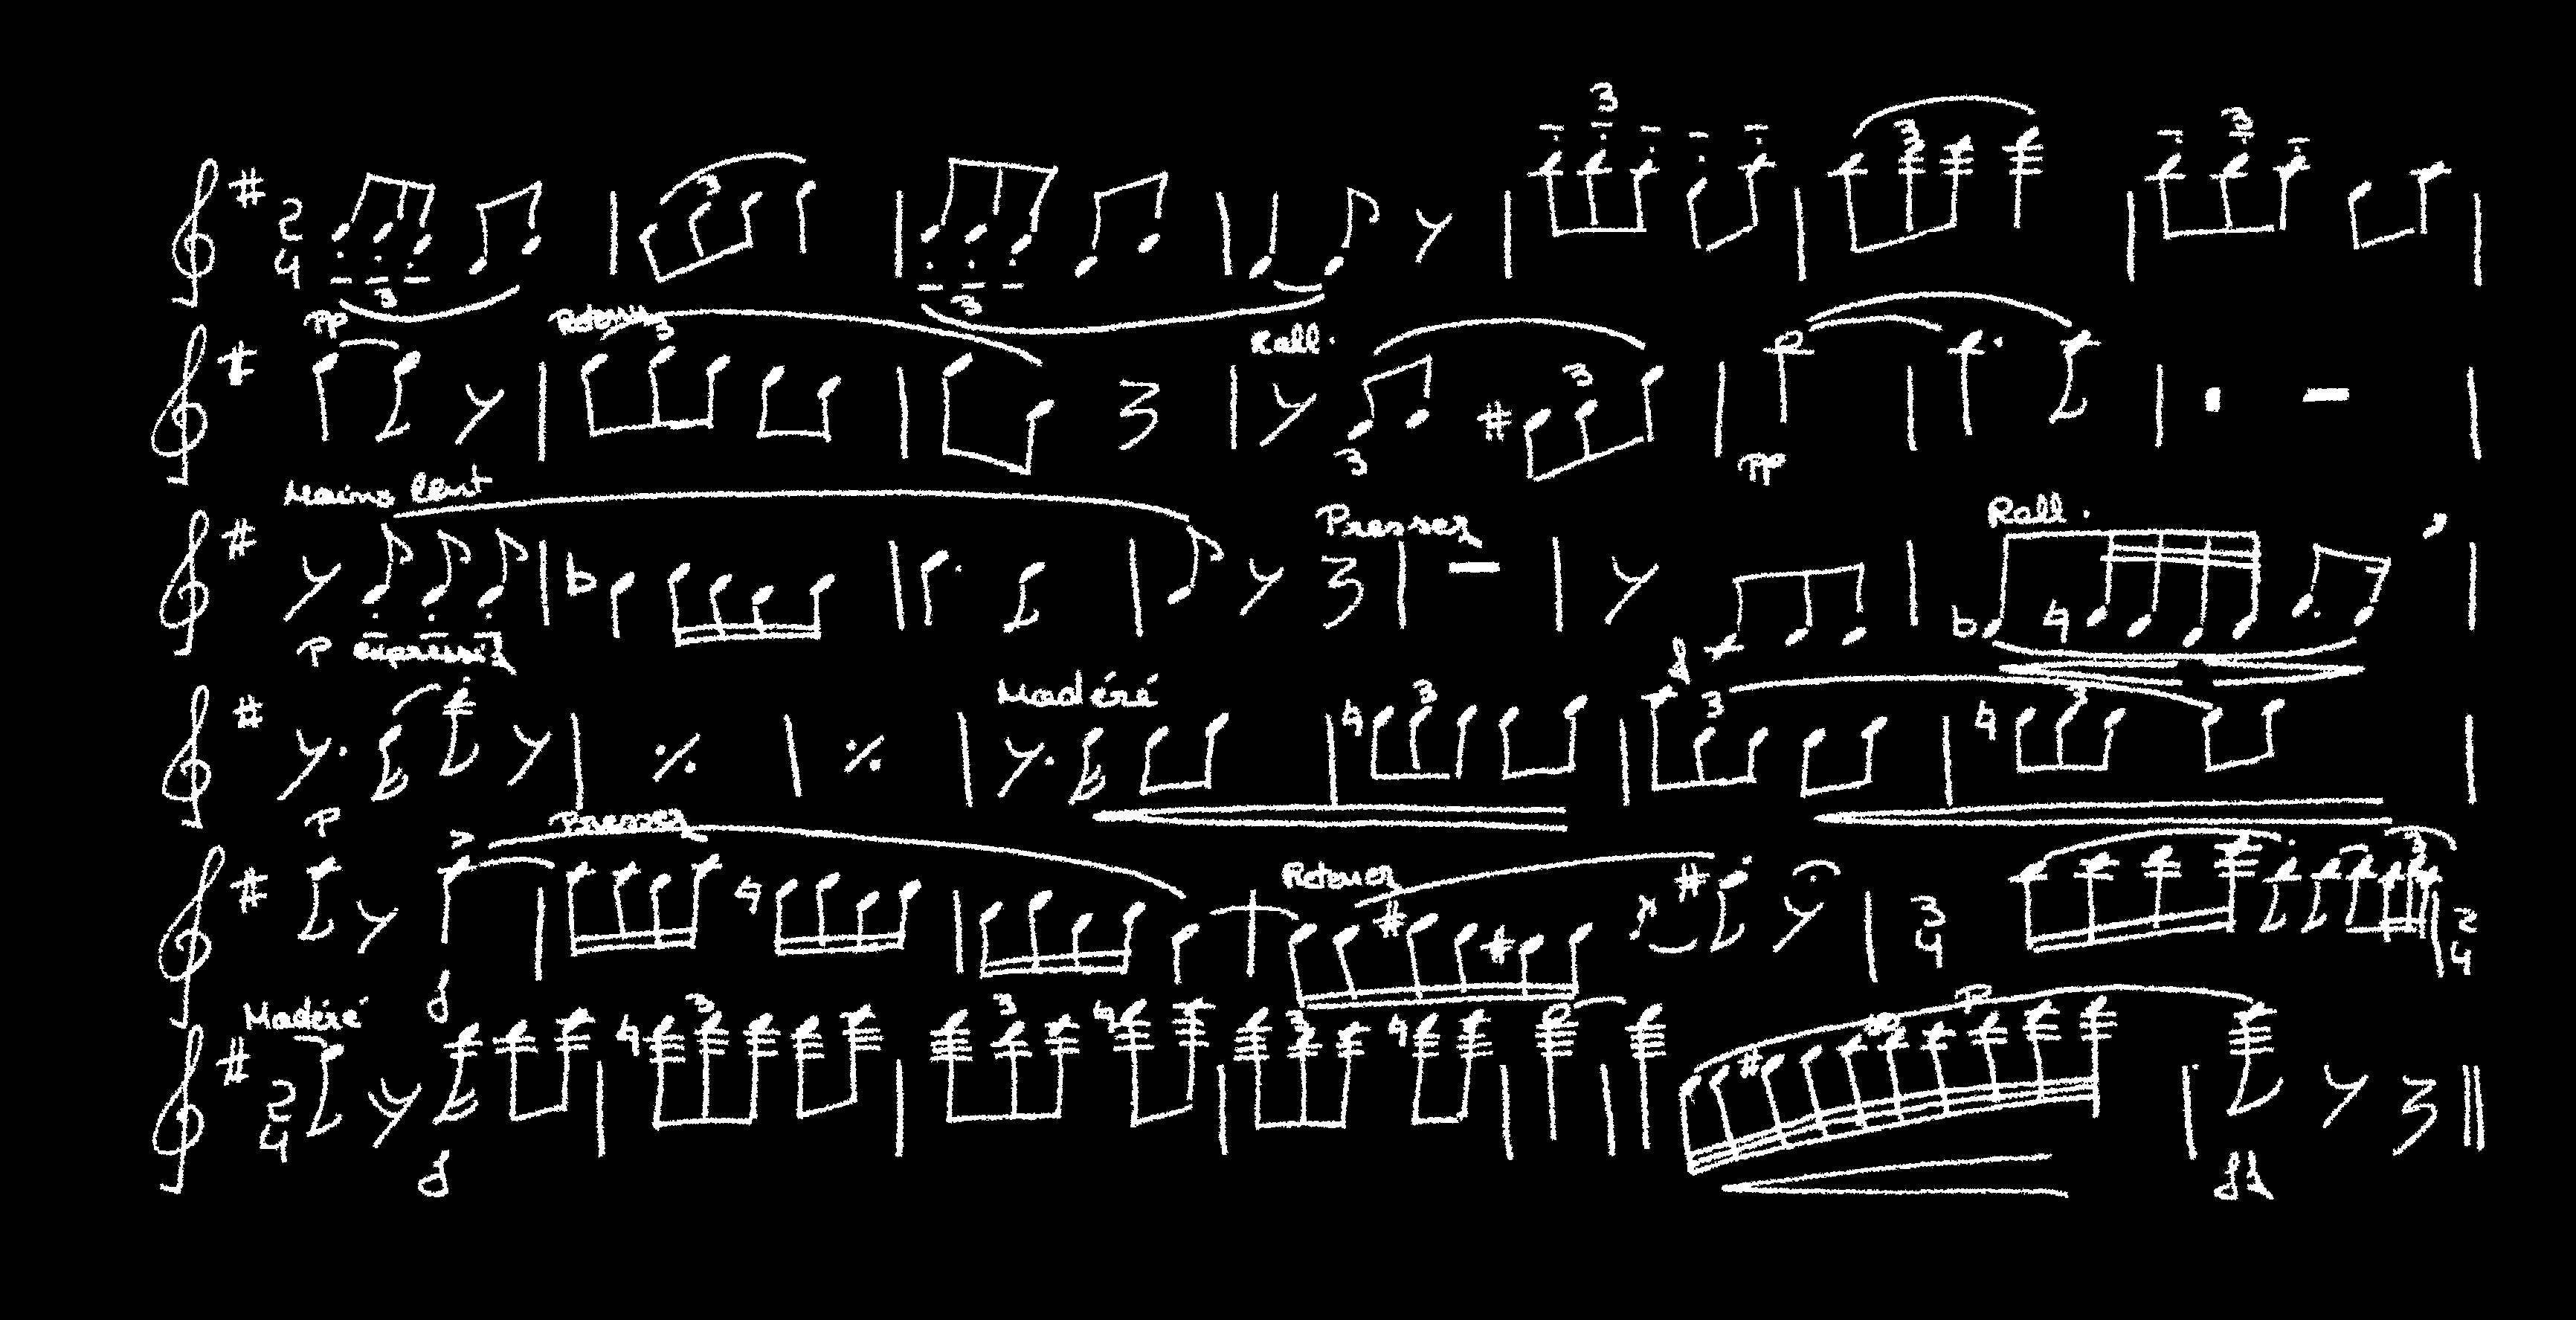 2 4 3 3 3 3 3 3
pp Retenu 3 Rall. 3 3 pp
Moins lent Presser Rall.
p expressif f
Modéré 3 3 3
p Presser Retenir 3 4 3 2 4
Modéré f 3 3 3 p
2 4 f ff